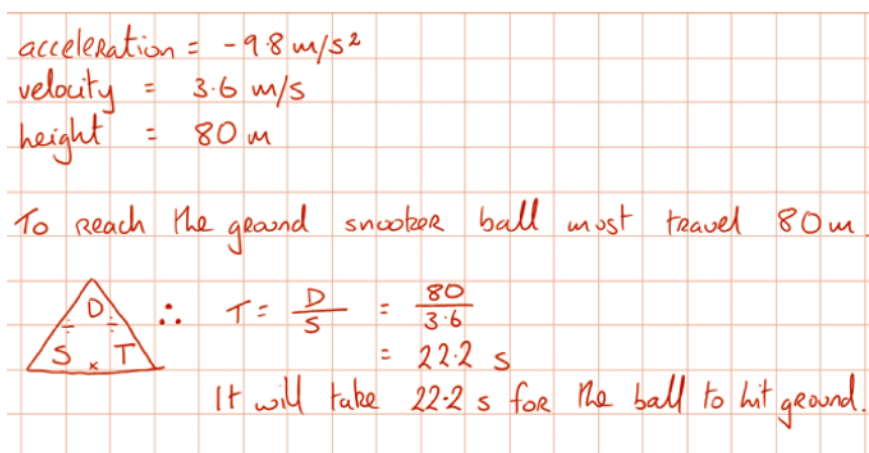 acceleration = -9.8 m/s²
velocity = 3.6 m/s
height = 80 m
To reach the ground snooker ball must travel 80 m.
D ÷ ÷ S × T ∴ T = D/S = 80/3.6
= 22.2 s
It will take 22.2 s for the ball to hit ground.